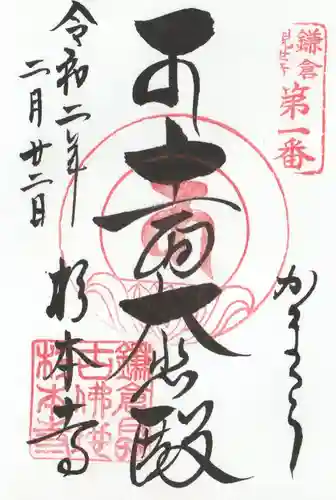 鎌倉
第一番
かまくら
十一面大悲殿
令和二年
二月廿二日
杉本寺
鎌倉最
古佛地
杉本寺